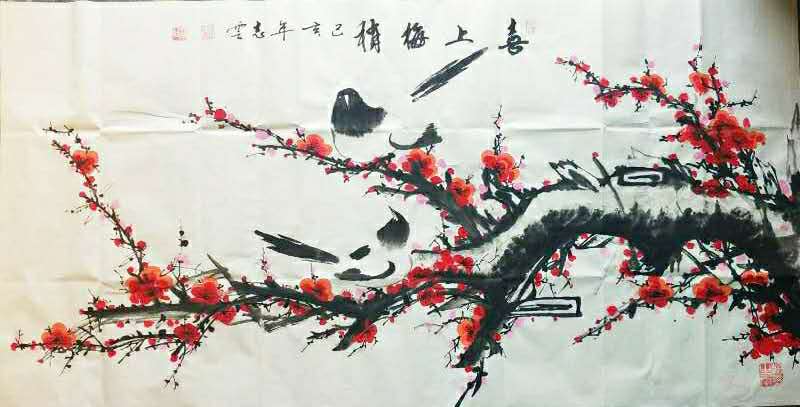 喜上梅梢 己亥年志雲